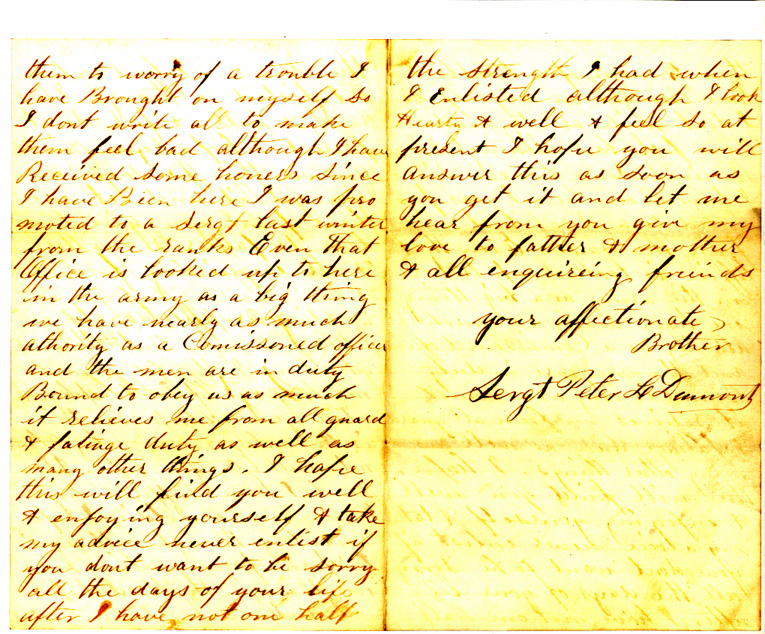 them to worry of a trouble I
have Brought on myself so
I dont write all to make
them feel bad although I have
Received some honers since
I have Bien here I was pro
moted to a Sergt last winter
from the ranks Even that
Office is looked up to here
in the army as a big thing
we have nearly as much
athority as a Comissoned officer
and the men are in duty
Bound to obey us as much
it relieves me from all guard
& fatiage duty as well as
many other things. I hope
this will find you well
& enjoying yourself & take
my advice never enlist if
you dont want to be sorry
all the days of your life
after I have not one half
the strength I had when
I Enlisted although I look
Hearty & well & feel so at
present I hope you will
answer this as soon as
you get it and let me
hear from you give my
love to father & mother
& all enquireing friends
your affectionate
Brother
Sergt Peter H Dumont